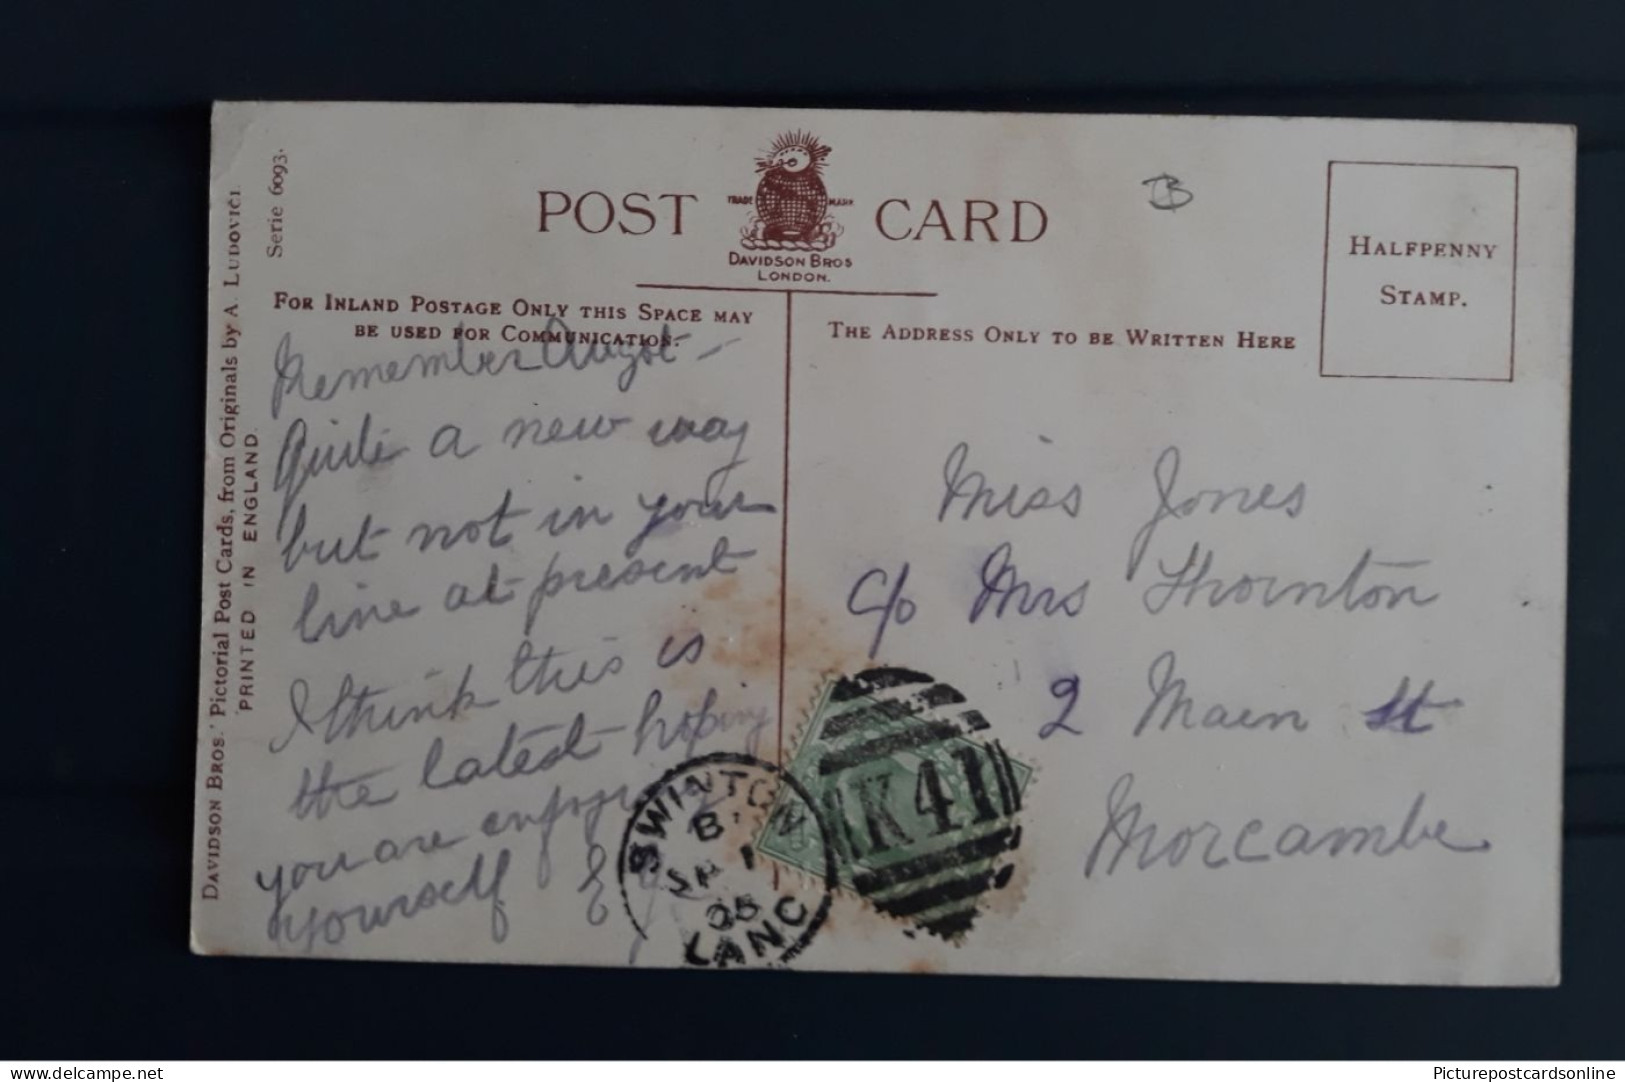 DAVIDSON BROS.' Pictorial Post Cards, from Originals by A. LUDOVICI.
PRINTED IN ENGLAND.
Serie 6093.
POST CARD
TRADE MARK
DAVIDSON BROS
LONDON.
FOR INLAND POSTAGE ONLY THIS SPACE MAY
BE USED FOR COMMUNICATION.
Remember
Quite a new way
but not in your
line at present
I think this is
the latest hoping
you are enjoying
yourself
THE ADDRESS ONLY TO BE WRITTEN HERE
HALFPENNY
STAMP.
Miss Jones
c/o Mrs Thornton
2 Main St
Morcambe
SWINTON
B
SP 1
05
LANC
K41
delcampe.net
Picturepostcardsonline